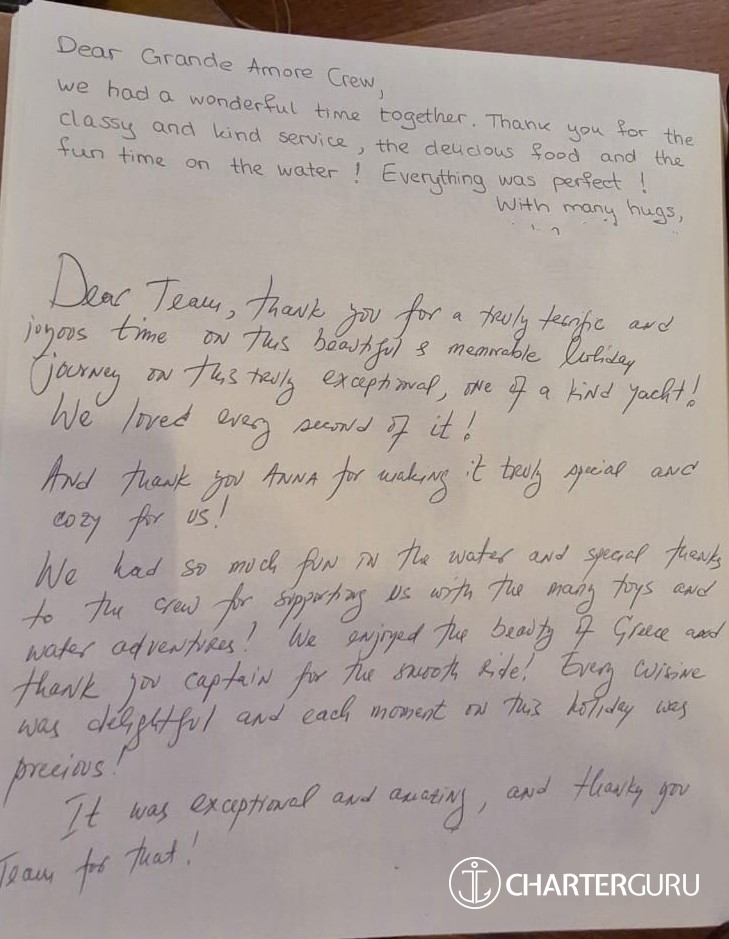 Dear Grande Amore Crew,
we had a wonderful time together. Thank you for the
classy and kind service, the delicious food and the
fun time on the water! Everything was perfect!
With many hugs,
Dear Team, thank you for a truly terrific and
joyous time on this beautiful & memorable holiday
journey on this truly exceptional, one of a kind yacht!
We loved every second of it!
And thank you ANNA for making it truly special and
cozy for us!
We had so much fun in the water and special thanks
to the crew for supporting us with the many toys and
water adventures! We enjoyed the beauty of Greece and
thank you captain for the smooth ride! Every cuisine
was delightful and each moment on this holiday was
precious!
It was exceptional and amazing, and thanky you
Team for that!
CHARTERGURU